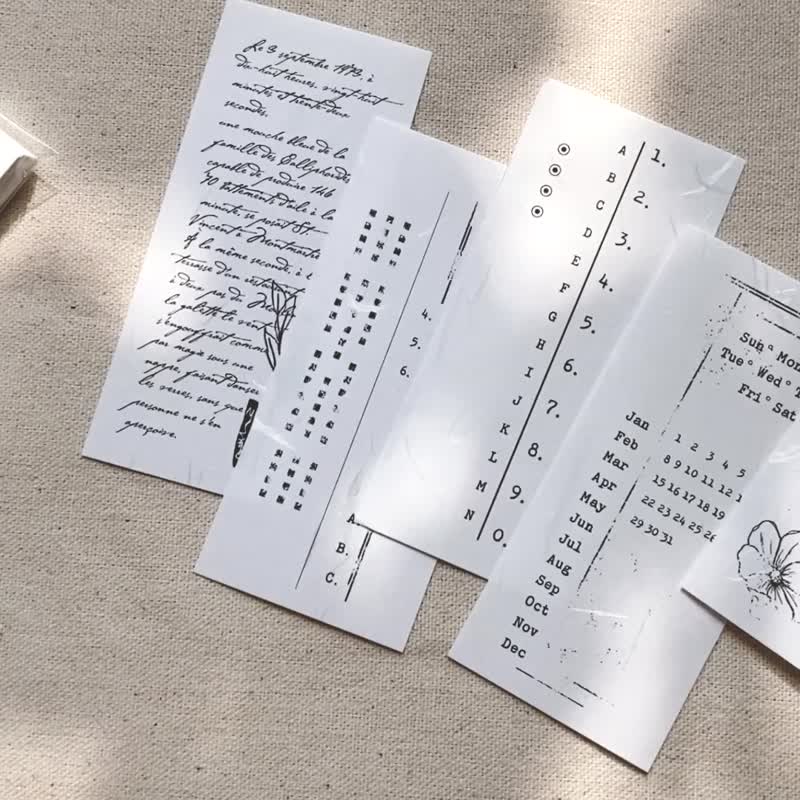 Le 3 septembre 1973, à
dix-huit heures, vingt-huit
minutes et trente-deux
secondes,
une mouche bleue de la
famille des Calliphoridés
capable de produire 146
70 battements d'aile à la
minute, se posait St.
Vincent à Montmartre
A la même seconde, à l
terrasse d'un restaurant
à deux pas du Moulin
la galette le vent
s'engouffrait comme
par magie sous une
nappe, faisant danser
les verres, sans que
personne ne s'en
aperçoive.
4.
5.
6.
A.
B.
C.
A
B
C
D
E
F
G
H
I
J
K
L
M
N
1.
2.
3.
4.
5.
6.
7.
8.
9.
0.
Sun Mon
Tue Wed T
Fri Sat
Jan
Feb
Mar
Apr
May
Jun
Jul
Aug
Sep
Oct
Nov
Dec
1 2 3 4 5
8 9 10 11 12 1
15 16 17 18 19
22 23 24 25 26
29 30 31